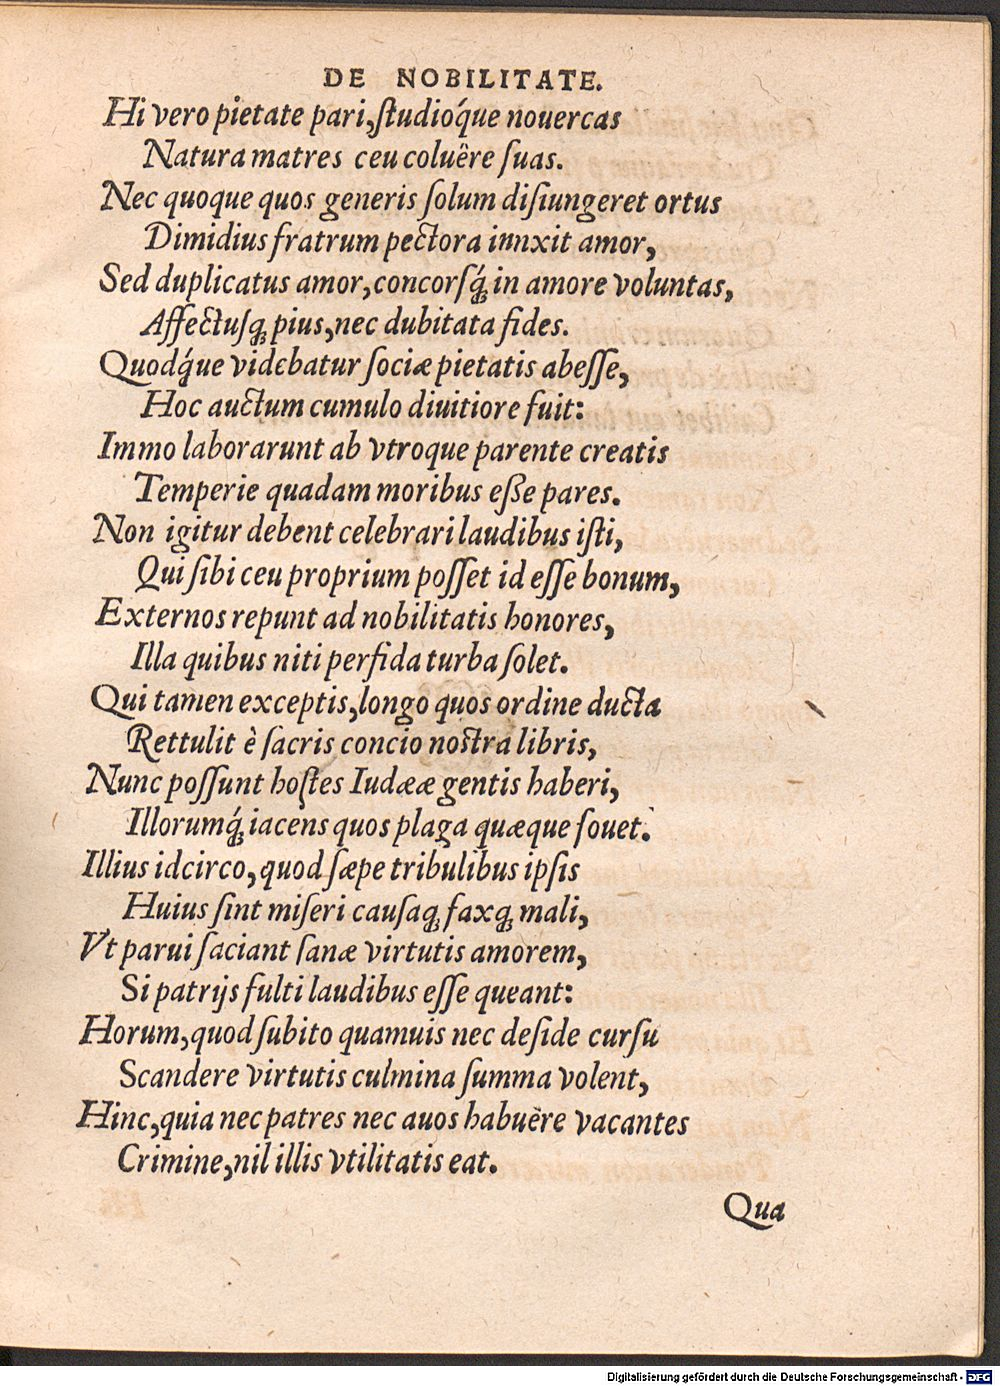 DE NOBILITATE.
Hi vero pietate pari,ſtudioq́ue nouercas
Natura matres ceu coluêre ſuas.
Nec quoque quos generis ſolum diſiungeret ortus
Dimidius fratrum pectora innxit amor,
Sed duplicatus amor,concorſq́ꝫ in amore voluntas,
Affectuſqꝫ pius,nec dubitata fides.
Quodq́ue videbatur ſociæ pietatis abeſſe,
Hoc auctum cumulo diuitiore fuit:
Immo laborarunt ab vtroque parente creatis
Temperie quadam moribus eße pares.
Non igitur debent celebrari laudibus iſti,
Qui ſibi ceu proprium poſſet id eſſe bonum,
Externos repunt ad nobilitatis honores,
Illa quibus niti perfida turba ſolet.
Qui tamen exceptis,longo quos ordine ducta
Rettulit è ſacris concio noſtra libris,
Nunc poſſunt hoſtes Iudææ gentis haberi,
Illorumq́ꝫ iacens quos plaga quæque fouet.
Illius idcirco,quod ſæpe tribulibus ipſis
Huius ſint miſeri cauſaqꝫ faxqꝫ mali,
Vt parui faciant ſanæ virtutis amorem,
Si patrijs fulti laudibus eſſe queant:
Horum,quod ſubito quamuis nec deſide curſu
Scandere virtutis culmina ſumma volent,
Hinc,quia nec patres nec auos habuêre vacantes
Crimine,nil illis vtilitatis eat.
Qua
Digitalisierung gefördert durch die Deutsche Forschungsgemeinschaft - DFG